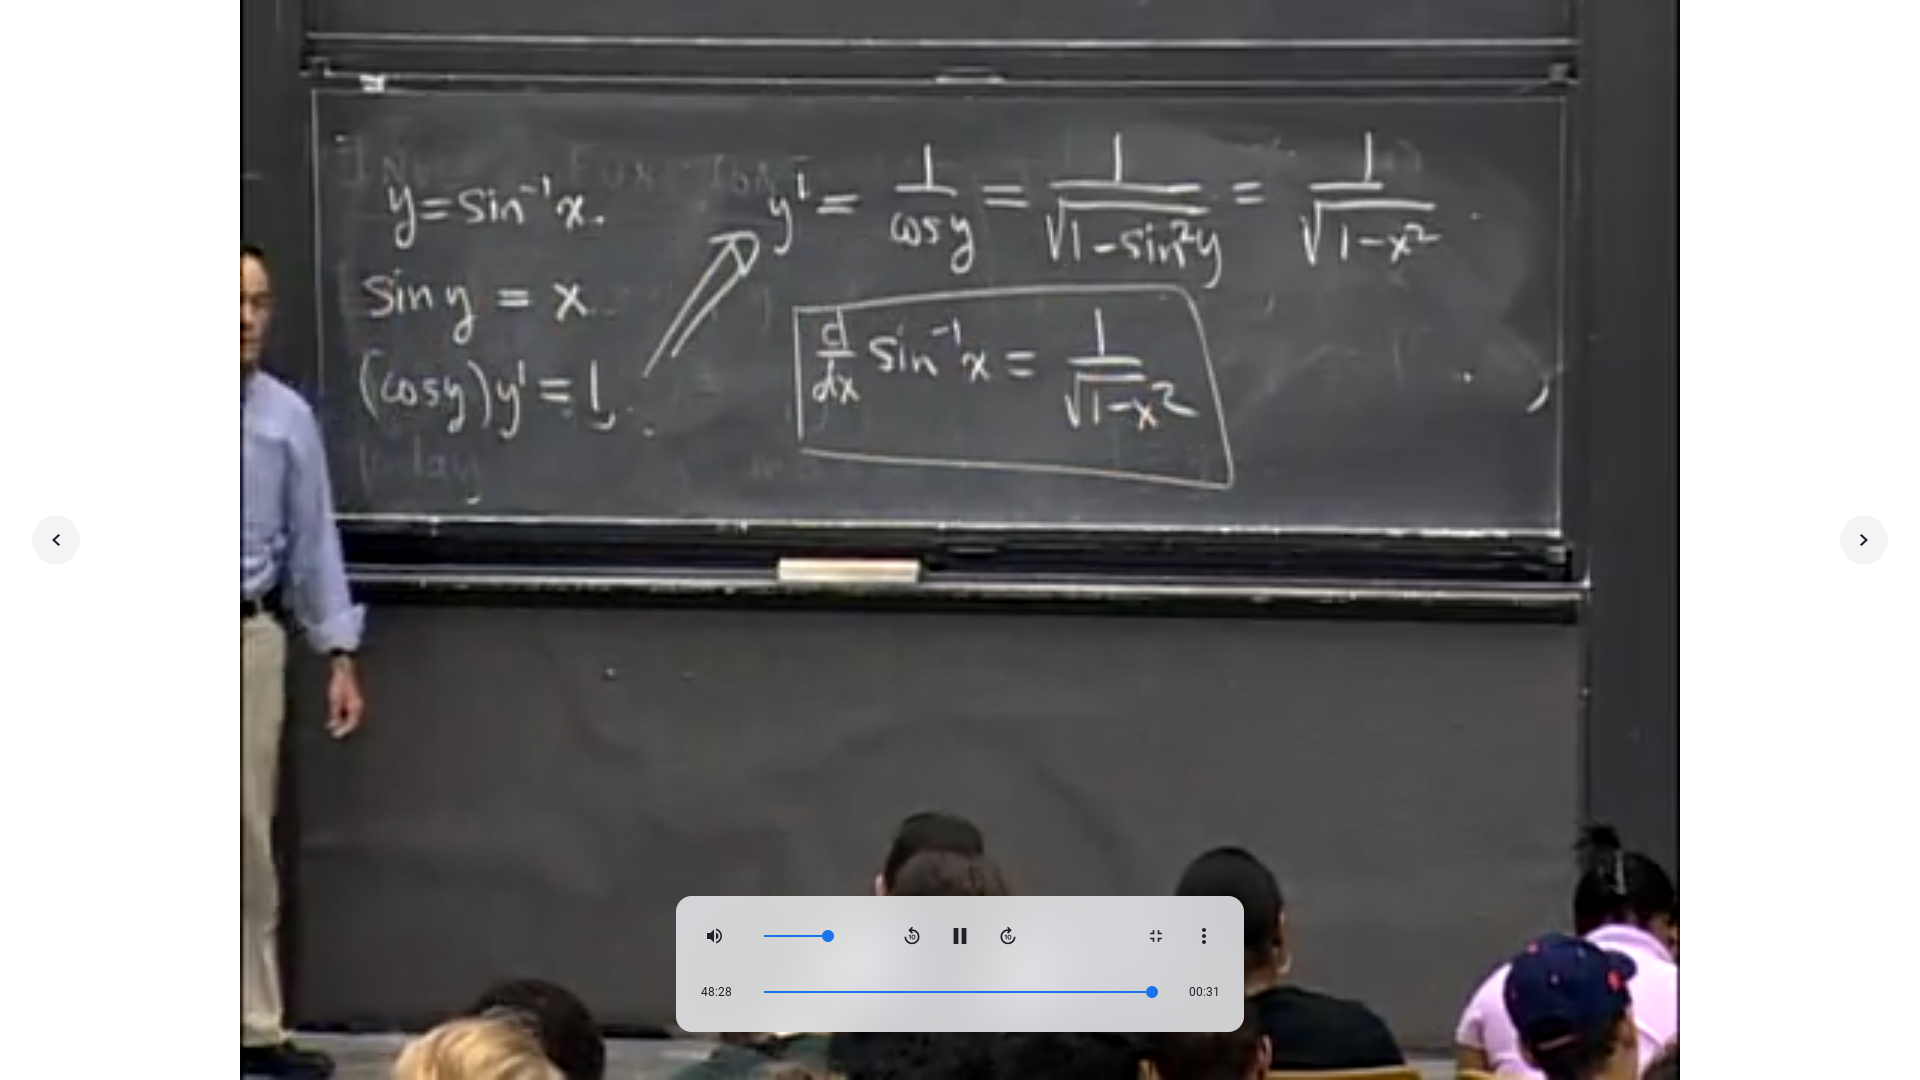 y = sin⁻¹x.
sin y = x
(cos y) y' = 1
y' = 1/cos y = 1/√(1-sin²y) = 1/√(1-x²)
d/dx sin⁻¹x = 1/√(1-x²)
10
10
48:28
00:31